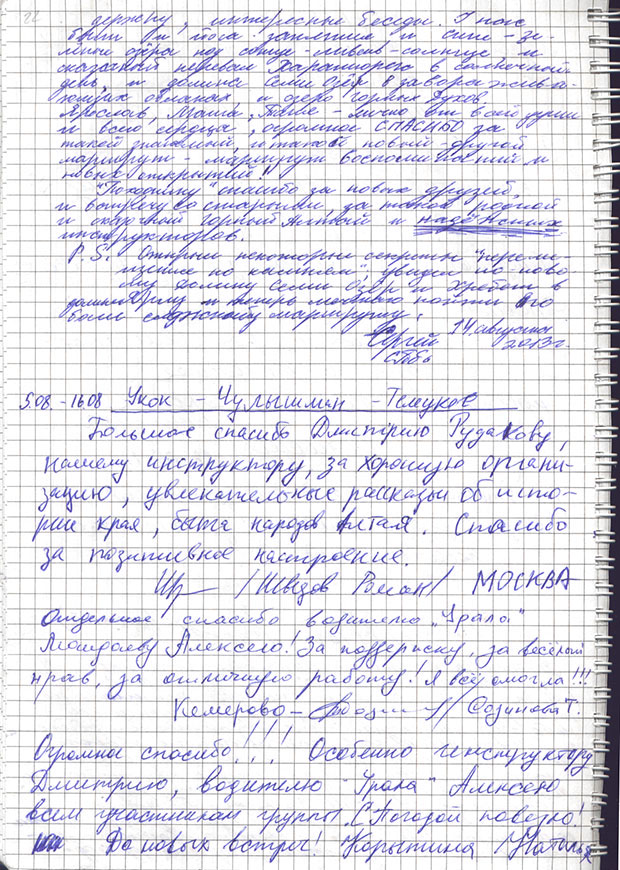 держку, интересные беседы. У нас
были и йога занятие и сине-зе-
лёные озёра над солнце-ливень-солнце и
сказочный перевал Каратюрек в солнечный
день, и долина Семи Озёр в завораживаю-
ющих облаках, и озеро Горных Духов.
Ярослав, Маша, – лично от всей души
и всего сердца, огромное СПАСИБО за
такой знакомый, и такой новый-другой
маршрут - маршрут воспоминаний и
новых открытий!
"Походнику" спасибо за новых друзей,
и встречу со старыми, за такой родной
и сказочный горный Алтай и надёжных
инструкторов.
P.S. Открыли некоторые секреты "переме-
щения по камням", увидел по-ново-
му долину Семи Озёр и хребет в
долине и теперь можно пойти по
более сложному маршруту.
Сергей 14 августа
СПб 2013 г.
5.08.-16.08 Укок - Чулышман - Телецкое
Большое спасибо Дмитрию Рудакову,
нашему инструктору, за хорошую органи-
зацию, увлекательные рассказы об исто-
рии края, быта народов Алтая. Спасибо
за позитивное настроение.
/Шведов Роман/ МОСКВА
Отдельное спасибо водителю "Урала"
Алексею! За поддержку, за весёлый
нрав, за отличную работу! Я всё смогла!!!
Кемерово - Т.
Огромное спасибо!!! Особенно инструктору
Дмитрию, водителю "Урала" Алексею
всем участникам группы. С Погодой повезло!
До новых встреч! Корытина Наталья